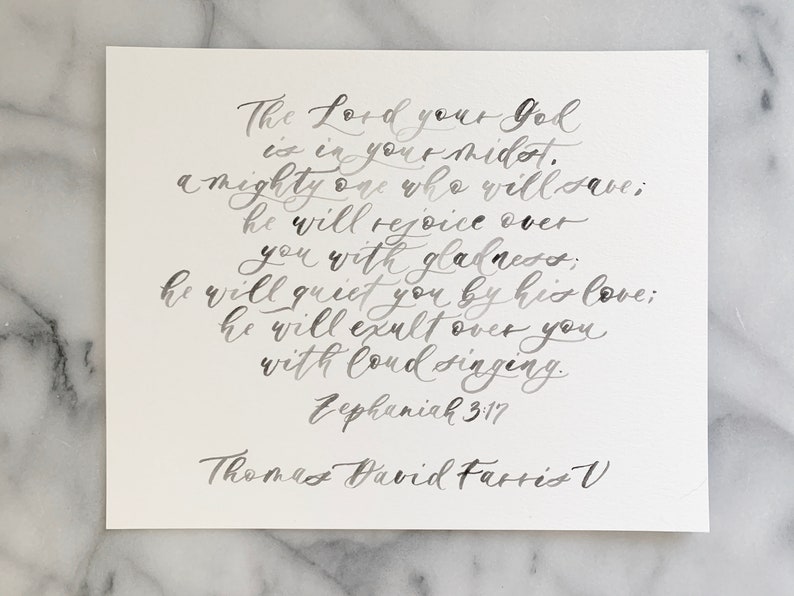 The Lord your God
is in your midst,
a mighty one who will save;
he will rejoice over
you with gladness;
he will quiet you by his love;
he will exult over you
with loud singing.
Zephaniah 3:17
Thomas David Farris V